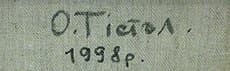 О.Тістол.
1998р.